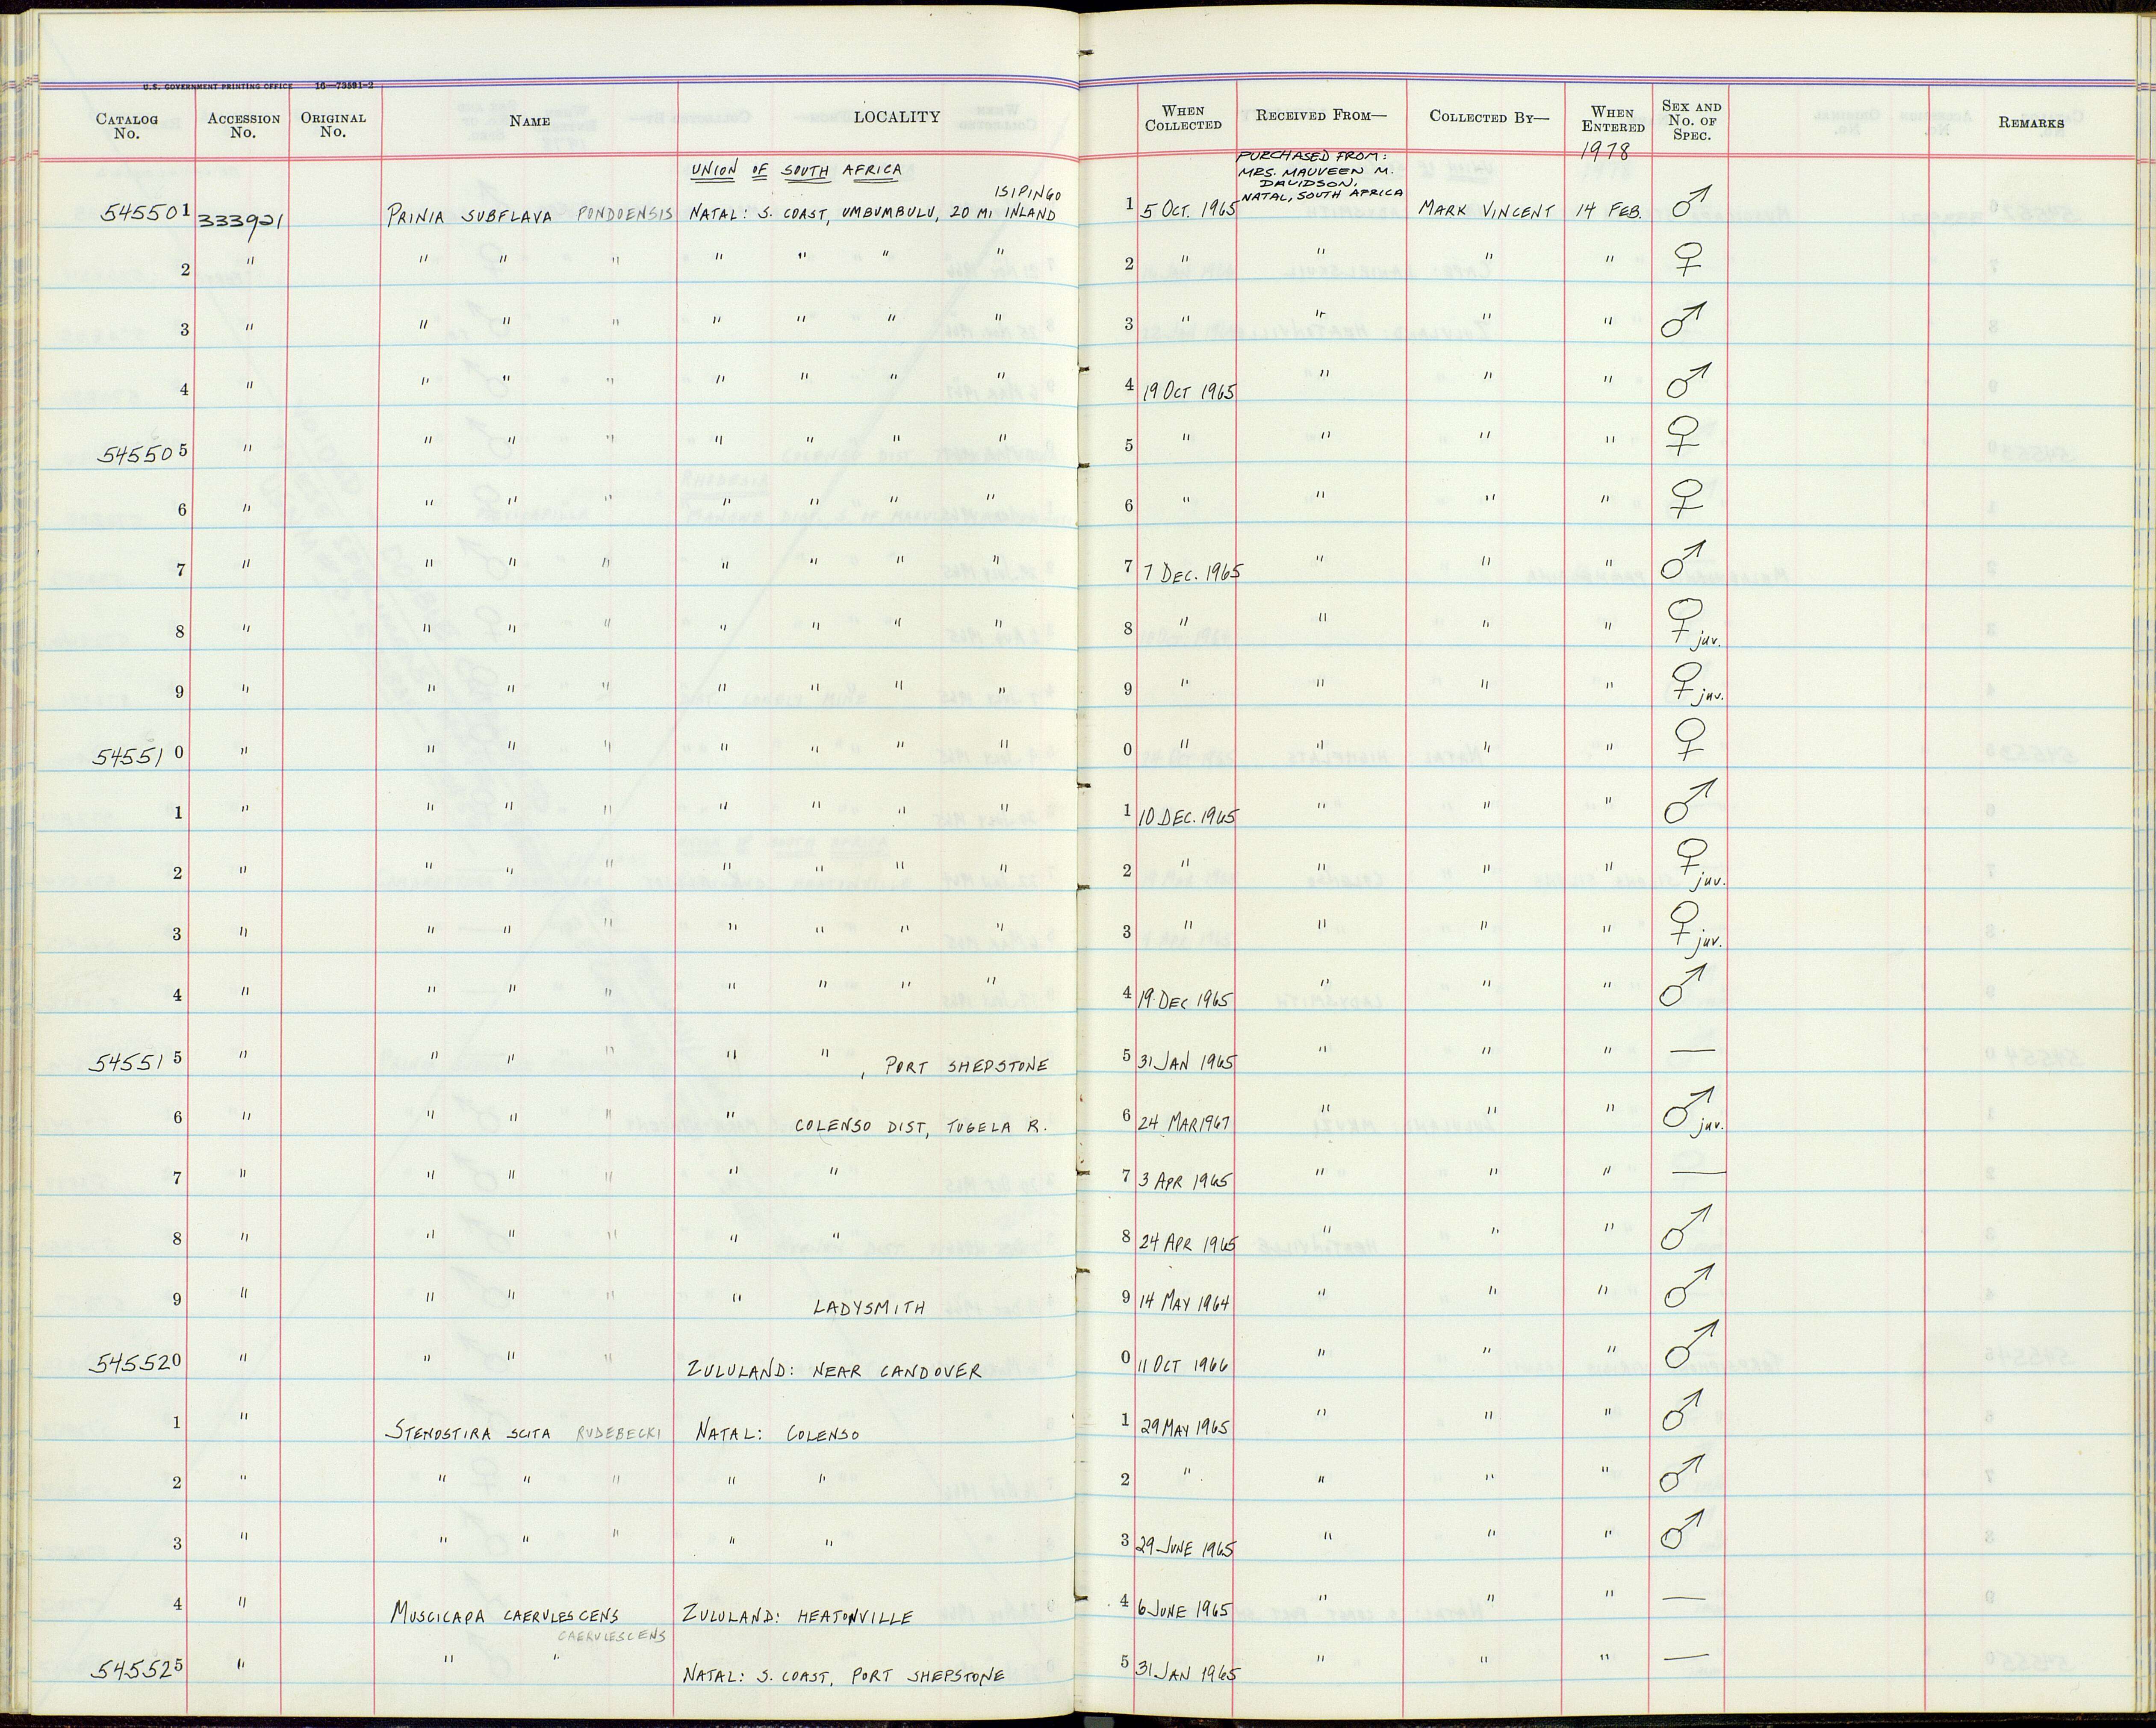 U.S. GOVERNMENT PRINTING OFFICE 16—73591-2
CATALOG No. ACCESSION No. ORIGINAL No. NAME LOCALITY WHEN COLLECTED RECEIVED FROM— COLLECTED BY— WHEN ENTERED SEX AND No. OF SPEC. REMARKS
1978
UNION OF SOUTH AFRICA PURCHASED FROM: MRS. MAUVEEN M. DAVIDSON, NATAL, SOUTH AFRICA
ISIPINGO
545501 333921 PRINIA SUBFLAVA PONDOENSIS NATAL: S. COAST, UMBUMBULU, 20 MI INLAND 1 5 OCT. 1965 MARK VINCENT 14 FEB. ♂
2 " " " " " " " " 2 " " " " ♀
3 " " " " " " " " 3 " " " " ♂
4 " " " " " " " " 4 19 OCT 1965 " " " ♂
545505 " " " " " " " " 5 " " " " ♀
6 " " " " " " " " 6 " " " " ♀
7 " " " " " " " " 7 7 DEC. 1965 " " " ♂
8 " " " " " " " " 8 " " " " ♀ juv.
9 " " " " " " " " 9 " " " " ♀ juv.
545510 " " " " " " " " 0 " " " " ♀
1 " " " " " " " " 1 10 DEC. 1965 " " " ♂
2 " " " " " " " " 2 " " " " ♀ juv.
3 " " " " " " " " 3 " " " " ♀ juv.
4 " " " " " " " " 4 19 DEC 1965 " " " ♂
545515 " " " " " " , PORT SHEPSTONE 5 31 JAN 1965 " " " —
6 " " " " " COLENSO DIST, TUGELA R. 6 24 MAR 1967 " " " ♂ juv.
7 " " " " " " 7 3 APR 1965 " " " —
8 " " " " " " 8 24 APR 1965 " " " ♂
9 " " " " " LADYSMITH 9 14 MAY 1964 " " " ♂
545520 " " " " ZULULAND: NEAR CANDOVER 0 11 OCT 1966 " " " ♂
1 " STENOSTIRA SCITA RUDEBECKI NATAL: COLENSO 1 29 MAY 1965 " " " ♂
2 " " " " " " 2 " " " " ♂
3 " " " " " " 3 29 JUNE 1965 " " " ♂
4 " MUSCICAPA CAERULESCENS ZULULAND: HEATONVILLE 4 6 JUNE 1965 " " " —
CAERULESCENS
545525 " " " NATAL: S. COAST, PORT SHEPSTONE 5 31 JAN 1965 " " " —